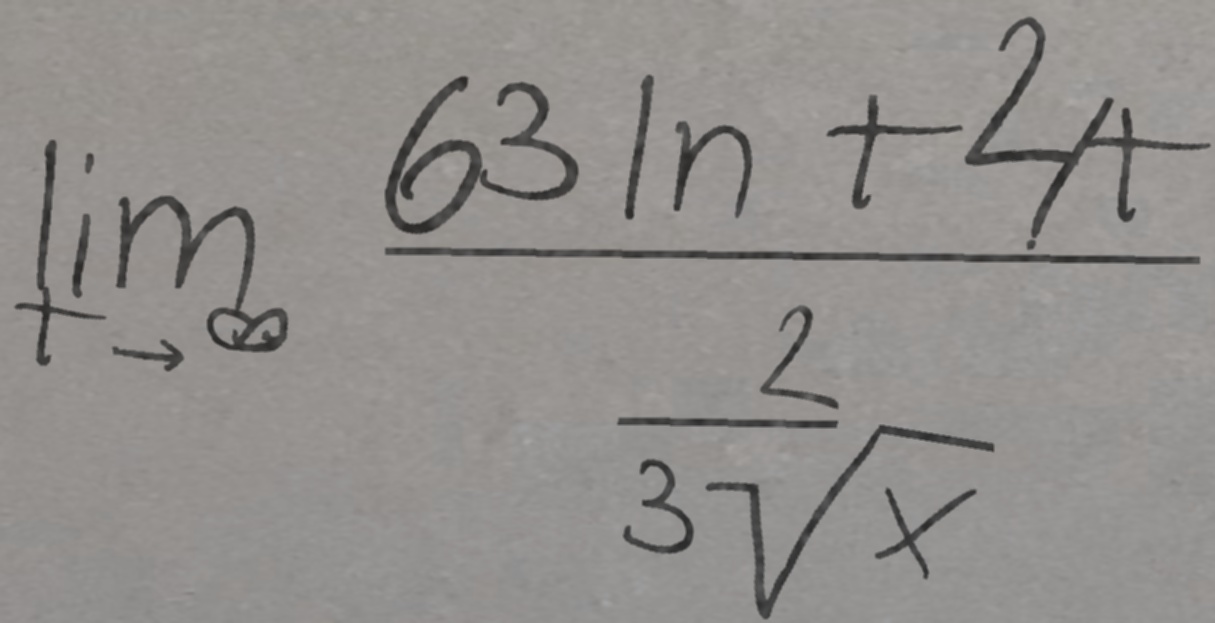 \lim_{t \to \infty} \frac{63 \ln t + 2/t}{\frac{2}{3\sqrt{x}}}